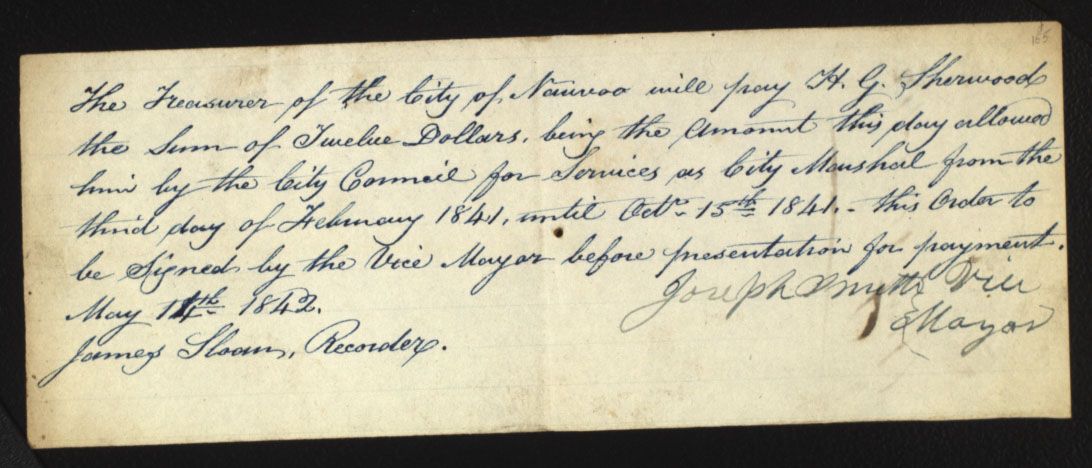 165
The Treasurer of the City of Nauvoo will pay H. G. Sherwood
the Sum of Twelve Dollars, being the Amount this day allowed
him by the City Council for Services as City Marshal from the
third day of February 1841, until Octr. 15th 1841. - this Order to
be Signed by the Vice Mayor before presentation for payment.
May 14th 1842.
Joseph Smith Vice
Mayor
James Sloan, Recorder.